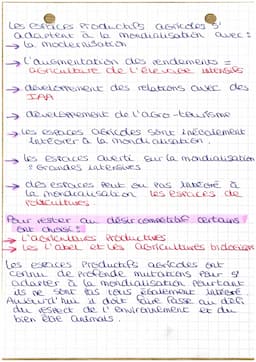 Les espaces Productifs agricoles s'
adaptent à la mondialisation avec :
→ la modernisation
→ l'augmentation des rendements =
agriculture de l'élevage intensifs
→ développement des relations avec des
IAA
→ développement de l'agro-tourisme
→ les espaces agricoles sont inégalement
intégrer à la mondialisation.
→ les espaces overté sur la mondialisation
: Grandes intensives
→ des espaces peut ou pas intégré à
la mondialisation les espaces de
policultures
Pour rester au désir compétitif certains
ont choisi :
→ L'agricultures Productives
→ Les l'abel et les agricultures biologiques
Les espaces Productifs agricoles ont
connu de profonde mutations pour s'
adapter à la mondialisation pourtant
ils ne sont pas tous également intégré
Aujourd'hui il doit faire face au défi
du respect de l'environnement et du
bien être animals.